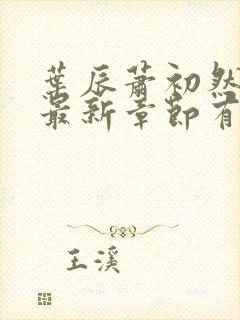 葉辰蕭初然
最新章節有
王溪